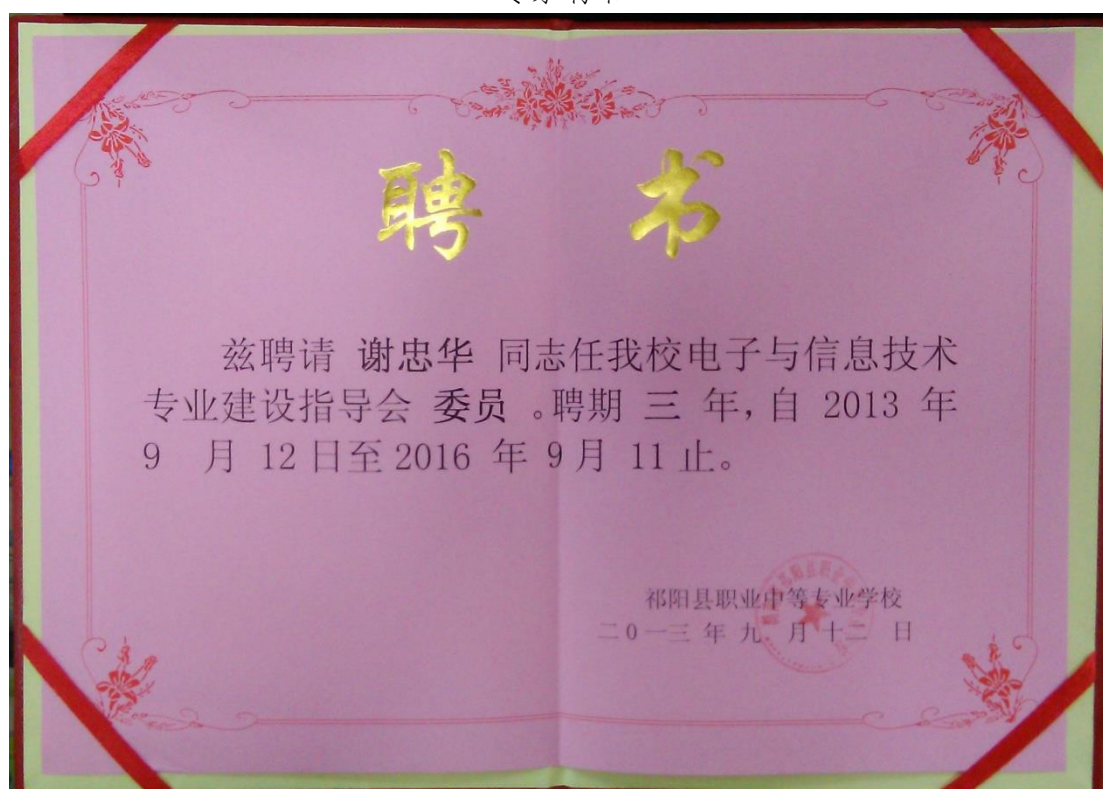 聘 书
兹聘请 谢忠华 同志任我校电子与信息技术
专业建设指导会 委员 。聘期 三 年,自 2013 年
9 月 12日至2016 年 9月 11止。
祁阳县职业中等专业学校
二0一三 年 九 月 十二 日